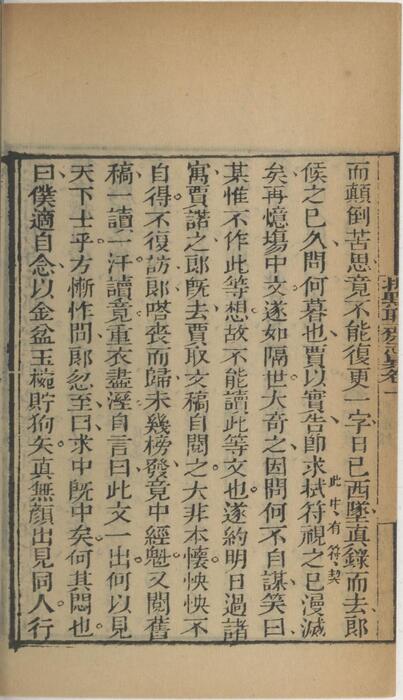 而顛倒苦思竟不能復更一字日已西墜直錄而去郎
候之已久問何暮也賈以實告即求拭符視之已漫滅
矣再憶塲中文遂如隔世大奇之因問何不自謀笑曰
某惟不作此等想故不能讀此等文也遂約明日過諸
寓賈諾之郎旣去賈取文稿自閱之大非本懷怏怏不
自得不復訪郎嗒喪而歸未幾榜發竟中經魁又閱舊
稿一讀一汗讀竟重衣盡溼自言曰此文一出何以見
天下士乎方慚怍間郎忽至曰求中旣中矣何其悶也
曰僕適自念以金盆玉椀貯狗矢真無顏出見同人行
此中有符契